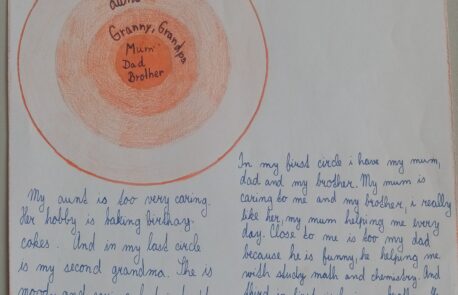 aunt
Granny, Grandpa
Mum
Dad
Brother
My aunt is too very caring.
Her hobby is baking birthay
cakes. And in my last circle
is my second grandma. She is
moody and
In my first circle i have my mum,
dad and my brother. My mum is
caring to me and my brother, i really
like her, my mum helping me every
day. Close to me is too my dad
because he is funny, he helping me
with study math and chemistry. And
third in first